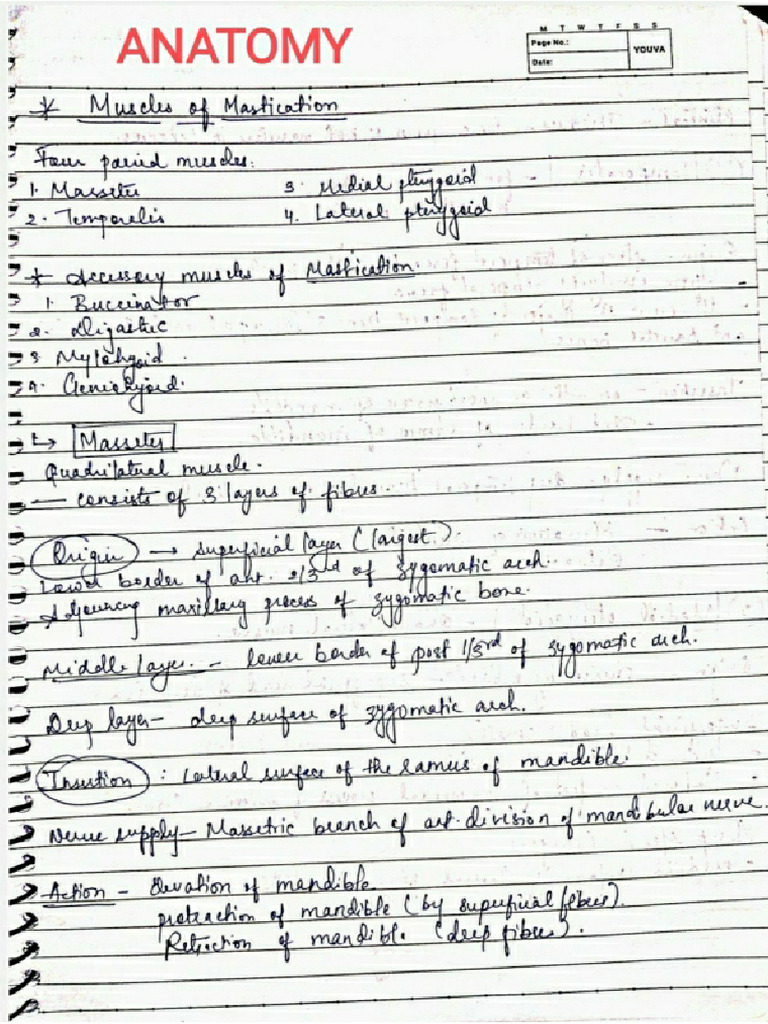 ANATOMY
M T W T F S S
Page No.:
Date:
YOUVA
* Muscles of Mastication
Four paried muscles:
1. Masseter
3. Medial pterygoid
2. Temporalis
4. Lateral pterygoid
* Accessory muscles of Mastication
1. Buccinator
2. Digastric
3. Mylohyoid.
4. Geniohyoid.
1 → Masseter
Quadrilateral muscle.
— consists of 3 layers of fibres.
Origin → superficial layer (largest).
Lower border of ant. 2/3rd of zygomatic arch.
Adjoining maxillary process of zygomatic bone.
Middle layer - lower border of post 1/3rd of zygomatic arch.
Deep layer - deep surface of zygomatic arch.
Insertion : Lateral surface of the ramus of mandible.
Nerve supply - Massetric branch of ant. division of mandibular nerve.
Action - Elevation of mandible
protraction of mandible (by superficial fibres).
Retraction of mandible. (deep fibres).